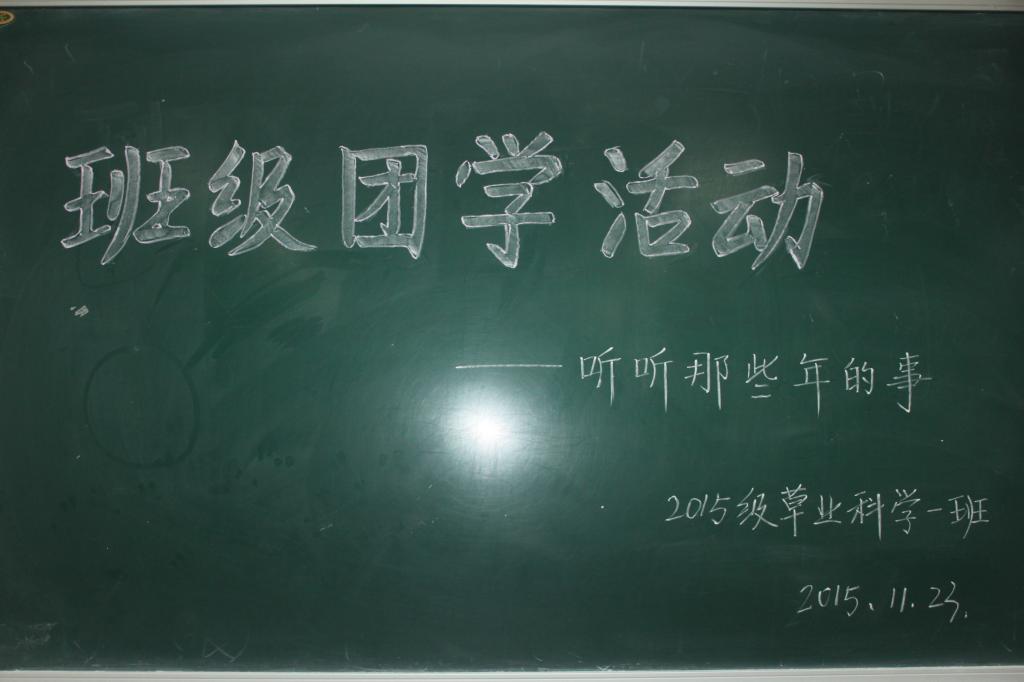 班级团学活动
——听听那些年的事
2015级草业科学一班
2015.11.23.